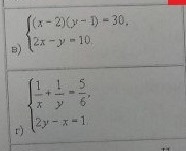 в) (x - 2)(y - 1) = 30,
2x - y = 10.
г) 1/x + 1/y = 5/6,
2y - x = 1.